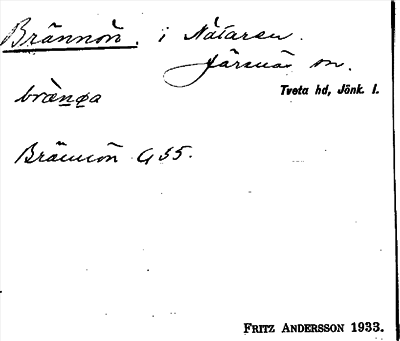 Brännön. i Nätaren.
Järsnäs sn.
Tveta hd, Jönk. l.
brænɷa
Brännön G 55.
FRITZ ANDERSSON 1933.